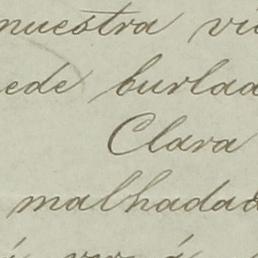 nuestra vi
ede burlad
Clara
malhadad